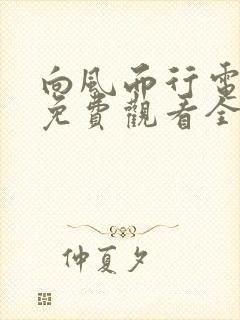 向風而行電
免費觀看全
仲夏夕